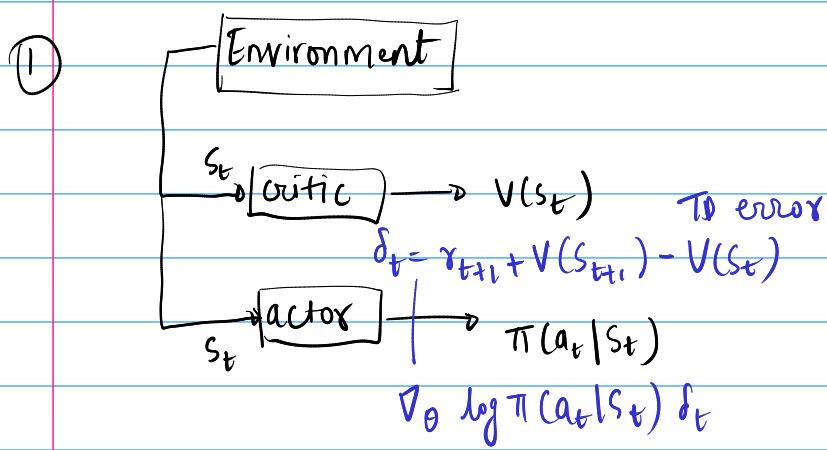 ①
Environment
S_t critic V(S_t)
TD error
δ_t = r_{t+1} + V(S_{t+1}) - V(S_t)
actor
S_t π(a_t|S_t)
∇_θ log π(a_t|S_t) δ_t